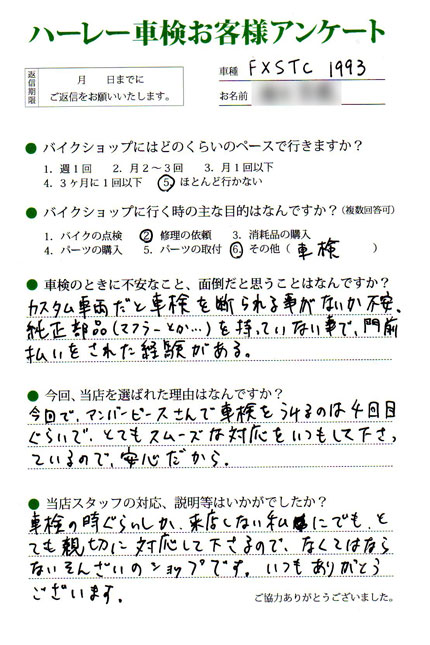 ハーレー車検お客様アンケート
返信期限
月 日までに
ご返信をお願いいたします。
車種 FXSTC 1993
お名前
● バイクショップにはどのくらいのペースで行きますか?
1. 週1回 2. 月2~3回 3. 月1回以下
4. 3ヶ月に1回以下 5. ほとんど行かない
● バイクショップに行く時の主な目的はなんですか?(複数回答可)
1. バイクの点検 2. 修理の依頼 3. 消耗品の購入
4. パーツの購入 5. パーツの取付 6. その他( 車検 )
● 車検のときに不安なこと、面倒だと思うことはなんですか?
カスタム車両だと車検を断られる事がないか不安。
純正部品(マフラーとか…)を持っていない事で、門前
払いをされた経験がある。
● 今回、当店を選ばれた理由はなんですか?
今回で、アンバーピースさんで車検をうけるのは4回目
ぐらいで、とてもスムーズな対応をいつもして下さっ
ているので、安心だから。
● 当店スタッフの対応、説明等はいかがでしたか?
車検の時ぐらいしか、来店しない私にでも、と
ても親切に対応して下さるので、なくてはなら
ないそんざいのショップです。いつもありがとう
ございます。
ご協力ありがとうございました。